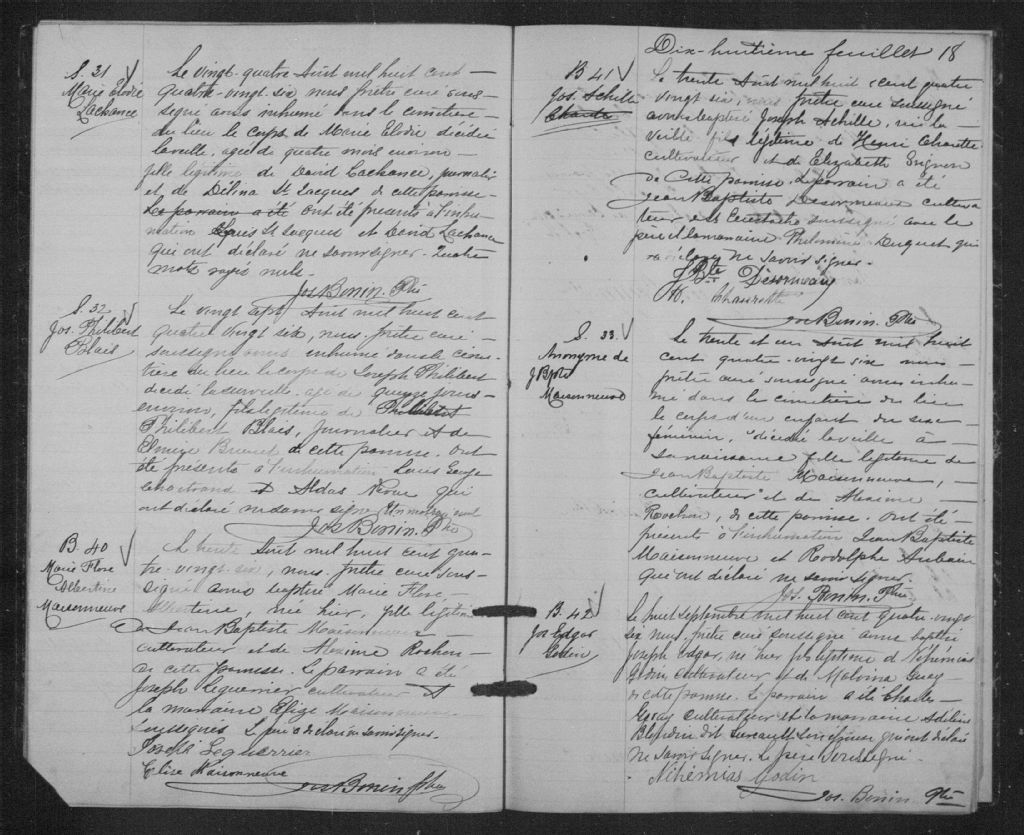 S. 31
Marie Elodie
Lachance
Le vingt-quatre Août mil huit cent
quatre-vingt-six nous prêtre curé sous-
signé avons inhumé dans le cimetière
du lieu le corps de Marie Elodie décédée
la veille, agée de quatre mois environ
fille légitime de David Lachance, journalier
et de Délina St Jacques de cette paroisse.
Le parrain a été Ont été présents à l'inhu-
mation St Jacques et David Lachance
qui ont déclaré ne savoir signer. Quatre
mots rayés nuls.
Jos Bonin Ptre
S. 32
Jos. Philibert
Blais
Le vingt sept Août mil huit cent
quatre vingt six, nous, prêtre curé
soussigné avons inhumé dans le cime-
tière du lieu le corps de Joseph Philibert
décédé agé de quinze jours
environ, fils légitime de
Philibert Blais, journalier et de
Brunet de cette paroisse. Ont
été présents à l'inhumation Louis
Chartrand et Aldas qui
ont déclaré ne savoir signer.
Jos Bonin Ptre
B. 40
Marie Flore
Albertine
Maisonneuve
Le trente Août mil huit cent qua-
tre-vingt-six, nous, prêtre curé sous-
signé avons baptisé Marie Flore,
Albertine, née hier, fille légitime
de Jean Baptiste Maisonneuve
cultivateur et de Alexime Rochon
de cette paroisse. Le parrain a été
Joseph Leguerrier cultivateur et
la marraine Elize Maisonneuve
soussignés. Le père a déclaré ne savoir signer.
Joseph Leguerrier
Elise Maisonneuve
Jos Bonin Ptre
Dix-huitième feuillet 18
B 41
Jos. Achille
Charette
Le trente Août mil huit cent quatre
vingt six, nous prêtre curé soussigné
avons baptisé Joseph Achille, né la
veille fils légitime de Henri Charette
cultivateur et de Elizabeth Grignon
de cette paroisse. Le parrain a été
Jean Baptiste Desormeaux cultiva-
teur de St Eustache soussigné avec le
père et la marraine Philomène Duquet qui
a déclaré ne savoir signer.
J Bte Désormeau
H. Chaurette
Jos Bonin Ptre
S. 33
Anonyme de
J Bpte
Maisonneuve
Le trente et un Août mil huit
cent quatre-vingt six nous
prêtre curé soussigné avons inhu-
mé dans le cimetière du lieu
le corps d'un enfant du sexe
féminin, décédé la veille à
sa naissance fille légitime de
Jean Baptiste Maisonneuve,
cultivateur et de Alexime
Rochon, de cette paroisse. Ont été
présents à l'inhumation Jean Baptiste
Maisonneuve et Rodolphe Aubain
qui ont déclaré ne savoir signer.
Jos. Bonin Ptre
B. 42
Jos Edgar
Godin
Le huit Septembre mil huit cent quatre-vingt
six nous, prêtre curé soussigné avons baptisé
Joseph Edgar, né hier fils légitime de Néhémias
Godin cultivateur et de Malvina Guay
de cette paroisse. Le parrain a été Charles
Guay cultivateur et la marraine Adeline
qui ont déclaré
ne savoir signer. Le père soussigné.
Néhémias Godin
Jos. Bonin Ptre